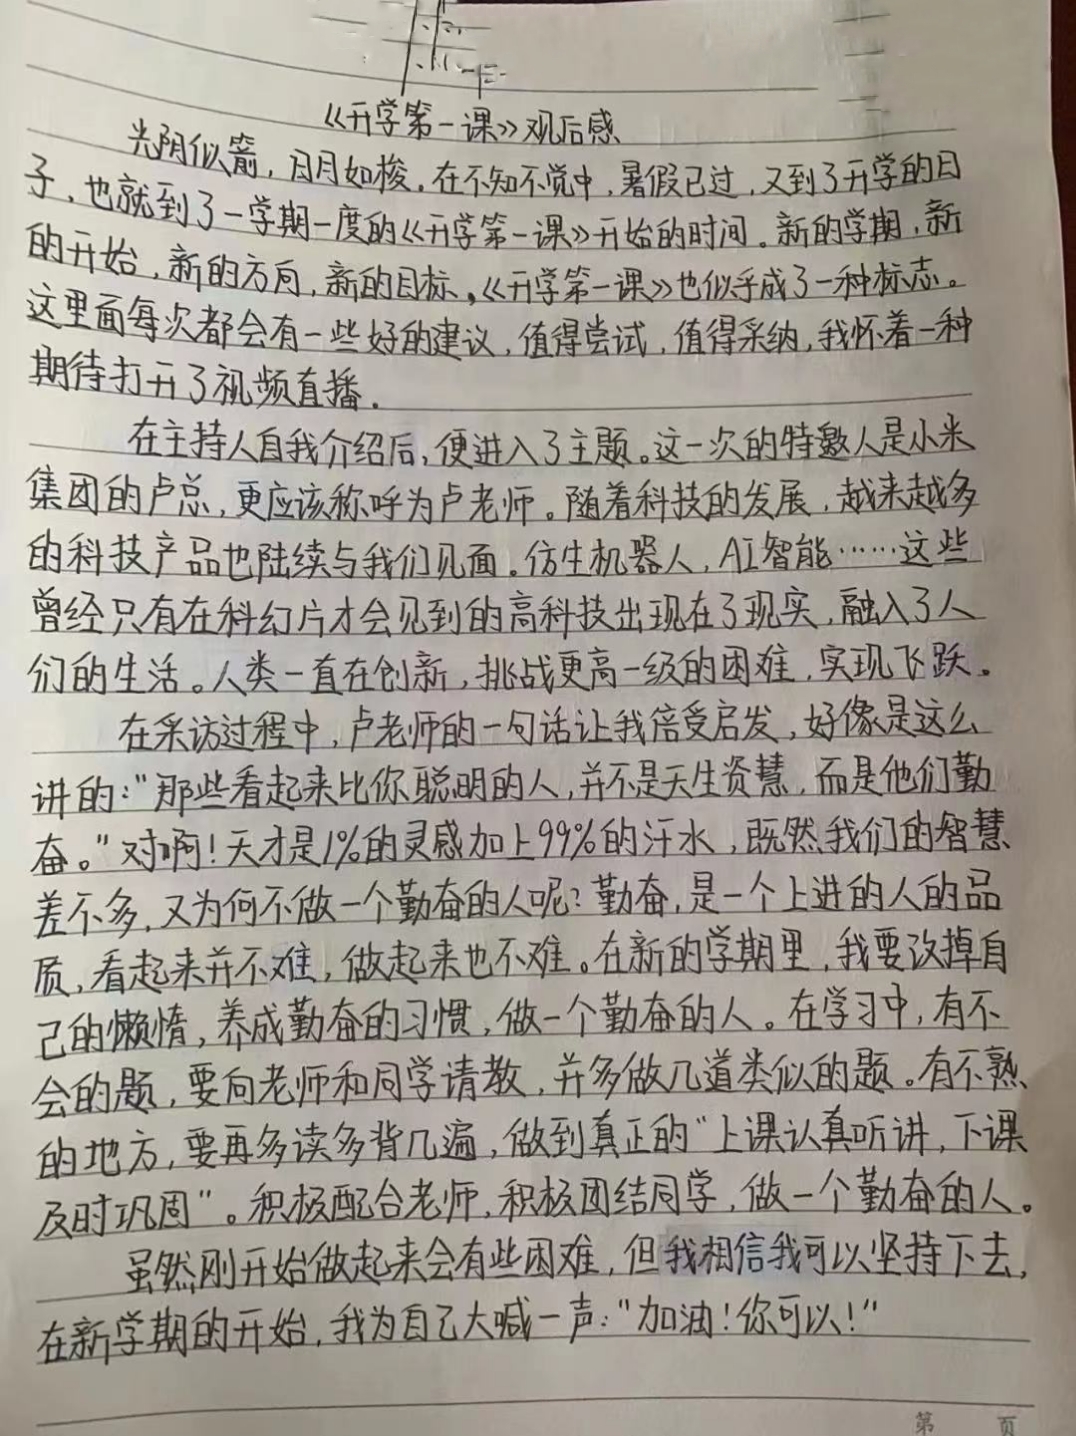 《开学第一课》观后感
光阴似箭，日月如梭。在不知不觉中，暑假已过，又到了开学的日
子，也就到了一学期一度的《开学第一课》开始的时间。新的学期，新
的开始，新的方向，新的目标，《开学第一课》也似乎成了一种标志。
这里面每次都会有一些好的建议，值得尝试，值得采纳，我怀着一种
期待打开了视频直播。
在主持人自我介绍后，便进入了主题。这一次的特邀人是小米
集团的卢总，更应该称呼为卢老师。随着科技的发展，越来越多
的科技产品也陆续与我们见面。仿生机器人，AI智能……这些
曾经只有在科幻片才会见到的高科技出现在了现实，融入了人
们的生活。人类一直在创新，挑战更高一级的困难，实现飞跃。
在采访过程中，卢老师的一句话让我倍受启发，好像是这么
讲的：“那些看起来比你聪明的人，并不是天生资慧，而是他们勤
奋。”对啊！天才是1%的灵感加上99%的汗水，既然我们的智慧
差不多，又为何不做一个勤奋的人呢？勤奋，是一个上进的人的品
质，看起来并不难，做起来也不难。在新的学期里，我要改掉自
己的懒惰，养成勤奋的习惯，做一个勤奋的人。在学习中，有不
会的题，要向老师和同学请教，并多做几道类似的题。有不熟
的地方，要再多读多背几遍，做到真正的“上课认真听讲，下课
及时巩固”。积极配合老师，积极团结同学，做一个勤奋的人。
虽然刚开始做起来会有些困难，但我相信我可以坚持下去，
在新学期的开始，我为自己大喊一声：“加油！你可以！”
第 页